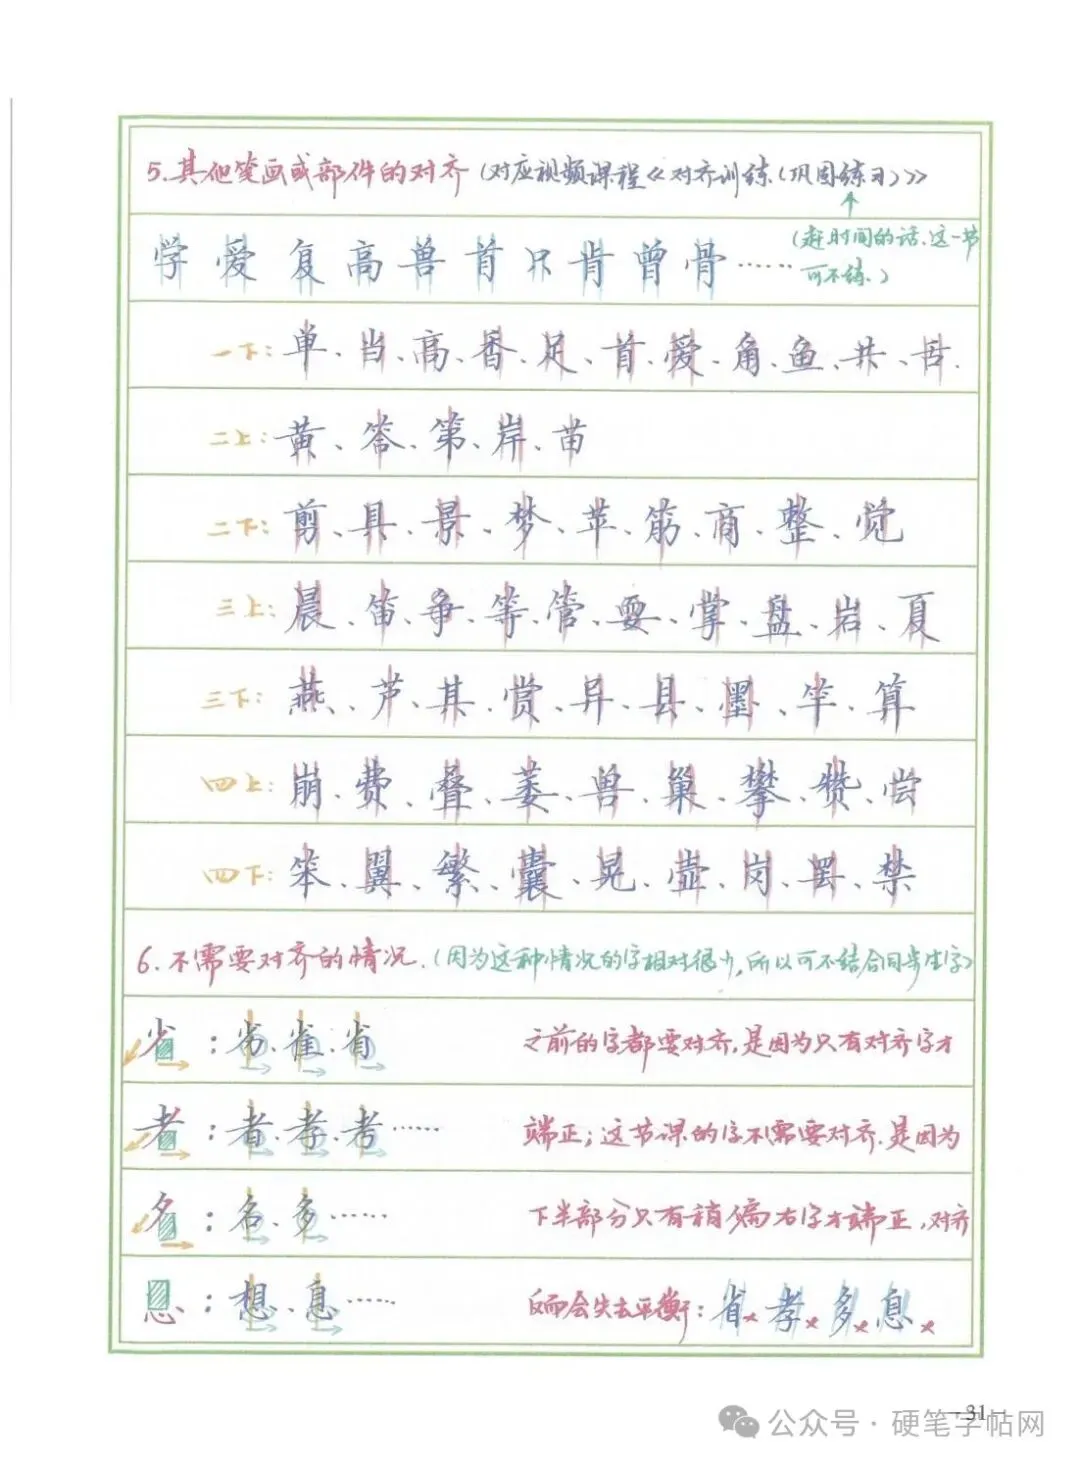 5.其他笔画或部件的对齐(对应视频课程《对齐训练(巩固练习)》)
↑
学 爱 复 高 兽 首 只 肯 曾 骨……(赶时间的话、这一节
可不练。)
一下:单、当、高、香、足、首、爱、角、鱼、共、苦.
二上:黄、答、第、岸、苗
二下:剪、具、景、梦、苹、筋、商、整、觉
三上:晨、笛、争、等、管、要、掌、盘、岩、夏
三下:燕、芦、其、赏、异、县、墨、竿、算
四上:崩、费、叠、萎、兽、巢、攀、赞、尝
四下:笨、翼、繁、囊、晃、壶、岗、罢、禁
6.不需要对齐的情况.(因为这种情况的字相对很少,所以可不结合同步生字)
省:劣、雀、省 之前的字都要对齐,是因为只有对齐字才
者:者、孝、考…… 端正;这节课的字不需要对齐.是因为
名:名、多…… 下半部分只有稍偏右字才端正,对齐
息:想、息…… 反而会失去平衡:省×孝×多×息×
—31—
公众号·硬笔字帖网